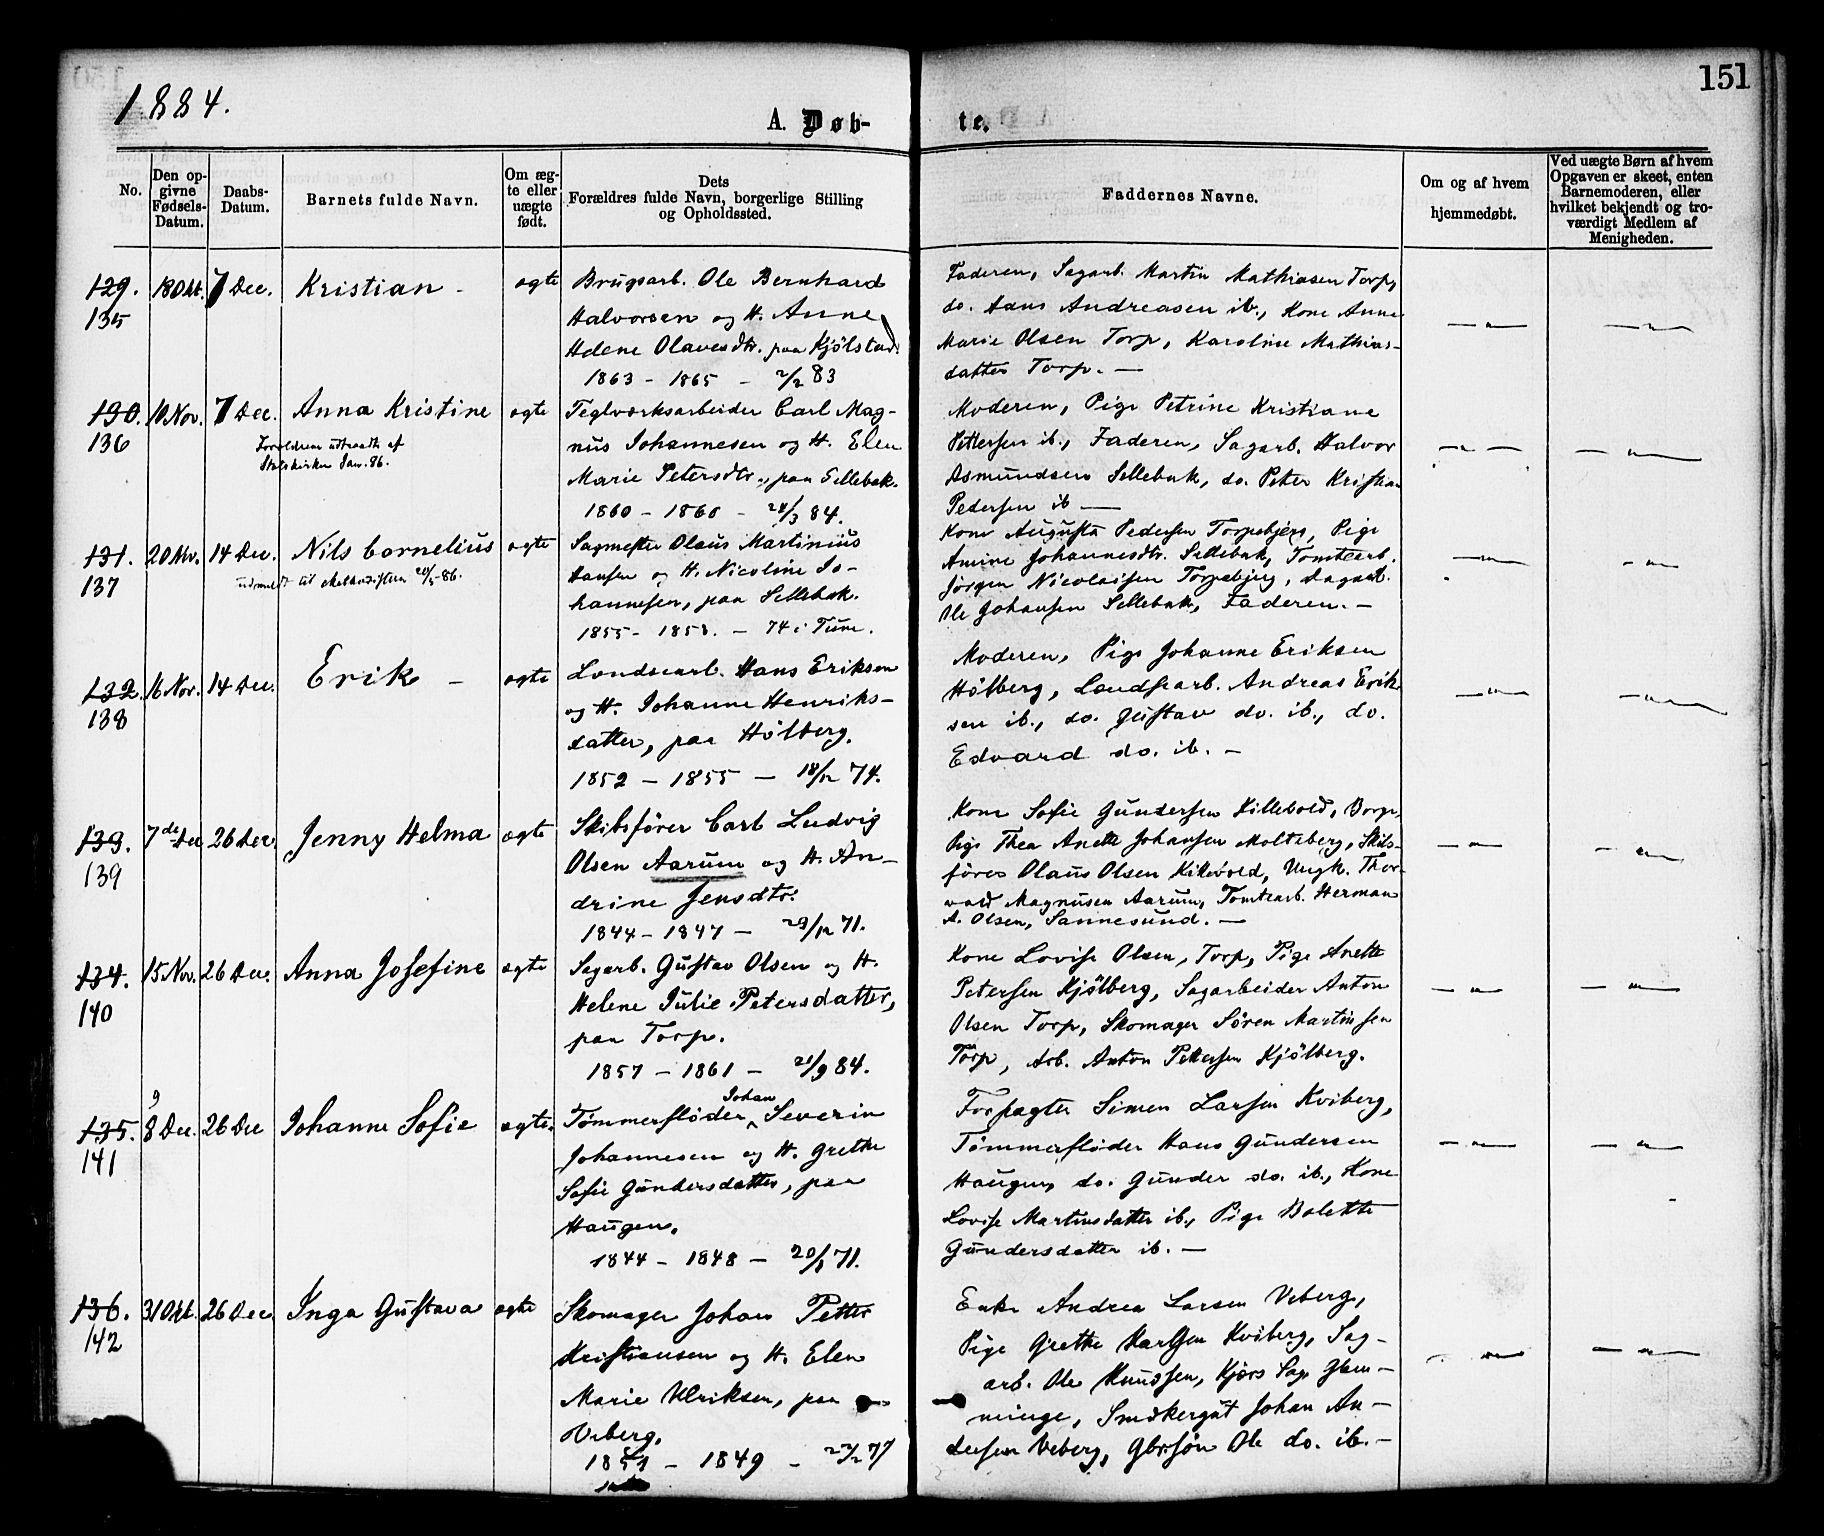 151
1884.
A. Døb-
te.
No.
Den op-
givne
Fødsels-
Datum.
Daabs-
Datum.
Barnets fulde Navn.
Om æg-
te eller
uægte
født.
Dets
Forældres fulde Navn, borgerlige Stilling
og Opholdssted.
Faddernes Navne.
Om og af hvem
hjemmedøbt.
Ved uægte Børn af hvem
Opgaven er skeet, enten
Barnemoderen, eller
hvilket bekjendt og tro-
værdigt Medlem af
Menigheden.
129. 18 Okt. 7 Dec. Kristian - ægte
135
Brugsarb. Ole Bernhard
Halvorsen og H. Anne
Helene Olavesdtr. paa Kjölstad.
1863 - 1865 - 2/2 83
Faderen, Sagarb. Martin Mathiasen Torp,
do. Hans Andreasen ib., Kone Anne
Marie Olsen Torp, Karoline Mathias-
datter Torp. -
130. 10 Nov. 7 Dec. Anna Kristine ægte
136
Forældrene udtraadt af
Statskirken Jan. 86.
Teglværksarbeider Carl Mag-
nus Johannesen og H. Elen
Marie Petersdtr., paa Sellebak.
1860 - 1860 - 28/3 84.
Moderen, Pige Petrine Kristiane
Pettersen ib., Faderen, Sagarb. Halvor
Asmundsen Sellebak, do. Peter Kristian
Pedersen ib -
131. 20 Nov. 14 Dec. Nils Cornelius ægte
137
udmeldt til Methodisten 20/5-86.
Sagmester Olaus Martinius
Hansen og H. Nicoline Jo-
hannesen, paa Sellebak.
1855 - 1858. - 74 i Tune.
Kone Augusta Pedersen Torpebjerg, Pige
Amine Johannesdtr. Sellebak, Tomtearb.
Jörgen Nicolaisen Torpebjerg, Sagarb.
Ole Johansen Sellebak, Faderen. -
132. 16 Nov. 14 Dec. Erik - ægte
138
Londsearb. Hans Eriksen
og H. Johanne Henriks-
datter, paa Hölberg.
1852 - 1855 - 18/12 74.
Moderen, Pige Johanne Eriksen
Hölberg, Londsearb. Andreas Erik-
sen ib., do. Gustav do. ib., do.
Edvard do. ib. -
133. 7de Dec 26 Dec. Jenny Helma ægte
139
Skibsförer Carl Ludvig
Olsen Aarum og H. An-
drine Jensdtr.
1844 - 1847 - 29/12 71.
Kone Sofie Gundersen Killevold, Borge,
Pige Thea Anette Johansen Molteberg, Skibs-
förer Olaus Olsen Killevold, Ungk. Thor-
vald Magnusen Aarum, Tomtearb. Herman
A. Olsen, Sannesund. -
134. 15 Nov. 26 Dec. Anna Josefine ægte
140
Sagarb. Gustav Olsen og H.
Helene Julie Petersdatter,
paa Torp.
1857 - 1861 - 21/9 84.
Kone Lovise Olsen, Torp, Pige Anette
Petersen Kjölberg, Sagarbeider Anton
Olsen Torp, Skomager Sören Martinsen
Torp, Arb. Anton Pettersen Kjölberg.
9
135. 8 Dec. 26 Dec Johanne Sofie ægte.
141
Johan
Tømmerfløder Severin
Johannesen og H. Grethe
Sofie Gundersdatter, paa
Haugen.
1844 - 1848 - 71.
Forpagter Simen Larsen Kviberg,
Tømmerfløder Hans Gundersen
Haugen, do. Gunder do. ib., Kone
Lovise Martinsdatter ib., Pige Bolette
Gundersdatter ib. -
136. 31 Okt. 26 Dec. Inga Gustava ægte
142
Skomager Johan Petter
Kristiansen og H. Elen
Marie Ulriksen, paa
Veberg.
1851 - 1849 - 77
Enke Andrea Larsen Veberg,
Pige Grethe Karlsen Kviberg, Sag-
arb. Ole Knudsen, Kjörs Sag Glem-
minge, Smökergut Johan An-
dersen Veberg, Gbrsön Ole do. ib. -